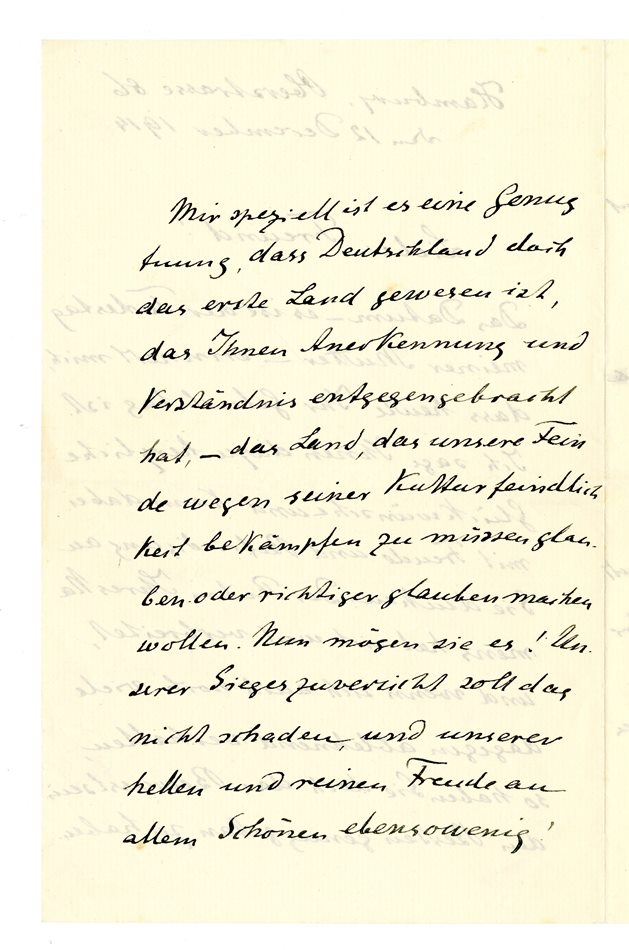 Mir speziell ist es eine Genug
tuung, dass Deutschland doch
das erste Land gewesen ist,
das Ihnen Anerkennung und
Verständnis entgegengebracht
hat, – das Land, das unsere Fein
de wegen seiner Kulturfeindlich
keit bekämpfen zu müssen glau-
ben oder richtiger glauben machen
wollen. Nun mögen sie es! Un-
serer Siegeszuversicht soll das
nicht schaden, und unserer
hellen und reinen Freude an
allem Schönen ebensowenig!